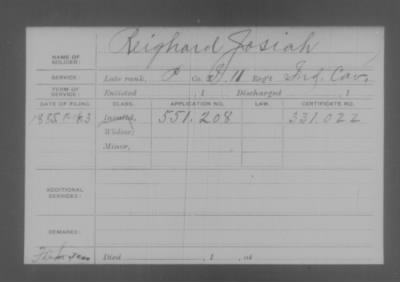 Reighard Josiah
NAME OF SOLDIER:
SERVICE: Late rank, P Co. I, 11 Reg't Ind. Cav,
TERM OF SERVICE: Enlisted , 1 Discharged , 1
DATE OF FILING. CLASS. APPLICATION NO. LAW. CERTIFICATE NO.
1885 Invalid, 551.208 331.022
Widow,
Minor,
ADDITIONAL SERVICES:
REMARKS:
Died , 1 , at